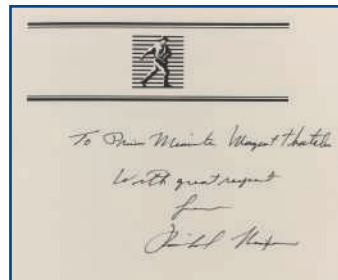 To Prime Minister Margaret Thatcher
With great respect
from
Richard Nixon